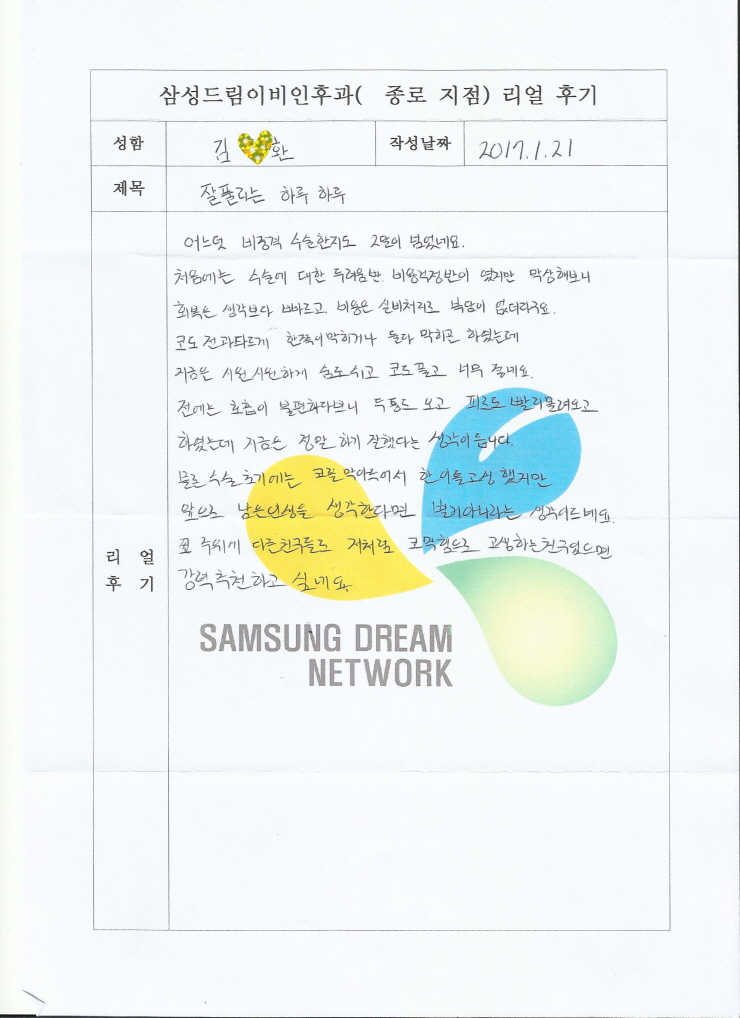 삼성드림이비인후과( 종로 지점) 리얼 후기
성함 김 환 작성날짜 2017.1.21
제목 잘풀리는 하루 하루
어느덧 비중격 수술한지도 2달이 넘었네요.
처음에는 수술에 대한 두려움반, 비용걱정반이 였지만 막상해보니
회복은 생각보다 빠르고, 비용은 실비처리로 부담이 없더라구요.
코도 전과다르게 한쪽이막히거나 둘다 막히곤 하였는데
지금은 시원시원하게 숨도쉬고 코도풀고 너무 좋네요.
전에는 호흡이 불편하다보니 두통도 오고 피로도 빨리몰려오고
하였는데 지금은 정말 하기 잘했다는 생각이듭니다.
물론 수술초기에는 코를 막아 한 이틀고생 했지만
앞으로 남은인생을 생각한다면 별거아니라는 생각이드네요.
꼭 주위에 다른친구들도 저처럼 코막힘으로 고생하는친구있으면
강력추천하고 싶네요.
리 얼
후 기
SAMSUNG DREAM
NETWORK